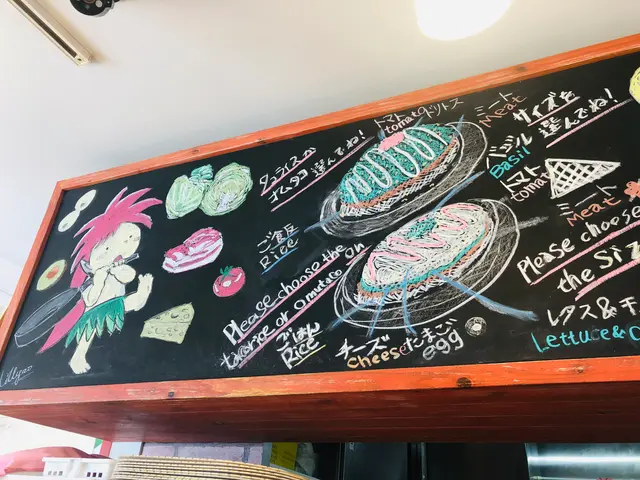 タコライスか
オムタコ 選んでね!
トマト&ドリトス
tomato
ミート
Meat
サイズを
選んでね!
バジル
Basil
トマト
tomato
ミート
Meat
ご飯
Rice
Please choose the
tacorice or omutaco on
ごはん
Rice
チーズ
cheese
たまご
egg
Please choose
the Siz
レタス&チ
Lettuce & C